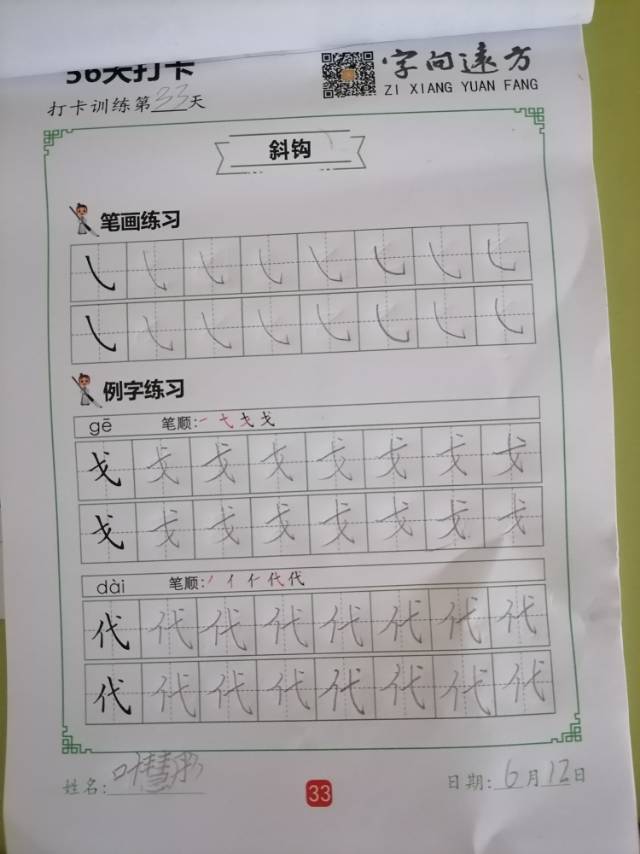 36天打卡
字向遠方
ZI XIANG YUAN FANG
打卡训练第33天
斜钩
笔画练习
例字练习
gē 笔顺:
戈 戈 戈 戈 戈 戈 戈 戈
戈 戈 戈 戈 戈 戈 戈 戈
dài 笔顺:
代 代 代 代 代 代 代 代
代 代 代 代 代 代 代 代
姓名:叶慧彤
33
日期:6月12日